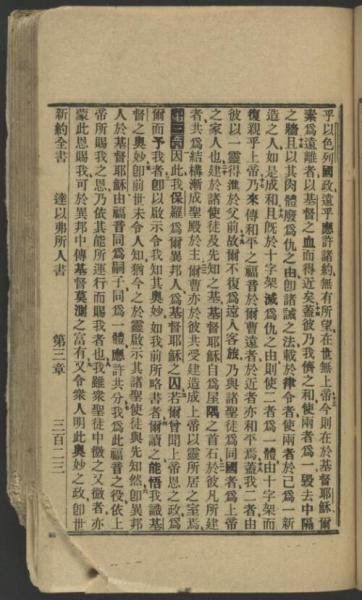 乎以色列國政遠乎應許諸約無有所望在世無上帝今則在於基督耶穌爾
素爲遠離者以基督之血而得近矣蓋彼乃我儕之和使兩者爲一毀去中隔
之牆且以其肉體廢爲仇之由卽諸誡之法載於律令者使兩者於己爲一新
造之人如是成和且旣於十字架滅爲仇之由則使二者爲一體由十字架而
復親乎上帝乃來傳和平之福音於爾曹遠者於近者亦和平焉蓋我二者由
彼以一靈得進於父前故爾不復爲遠人客旅乃與諸聖徒爲同國者爲上帝
之家人也建於諸使徒及先知之基基督耶穌自爲屋隅之首石於彼凡所建
者共爲結構漸成聖殿於主爾曹亦於彼共受建造成上帝以靈所居之室焉
第三章因此我保羅爲爾異邦人爲基督耶穌之囚若爾曾聞上帝恩之政爲
爾而予我者卽以啟示令我知其奧妙如我前所略書者爾讀之能悟我識基
督之奧妙卽前世未令人知猶今之於靈啟示其諸聖使徒與先知然卽異邦
人於基督耶穌由福音同爲嗣子同爲一體應許共分我爲此福音之役依上
帝所賜我之恩乃依其能所運行而賜我者也我雖衆聖徒中微之又微者亦
蒙此恩賜我可於異邦中傳基督莫測之富有又令衆人明此奧妙之政卽世
新約全書 達以弗所人書 第三章 三百二三